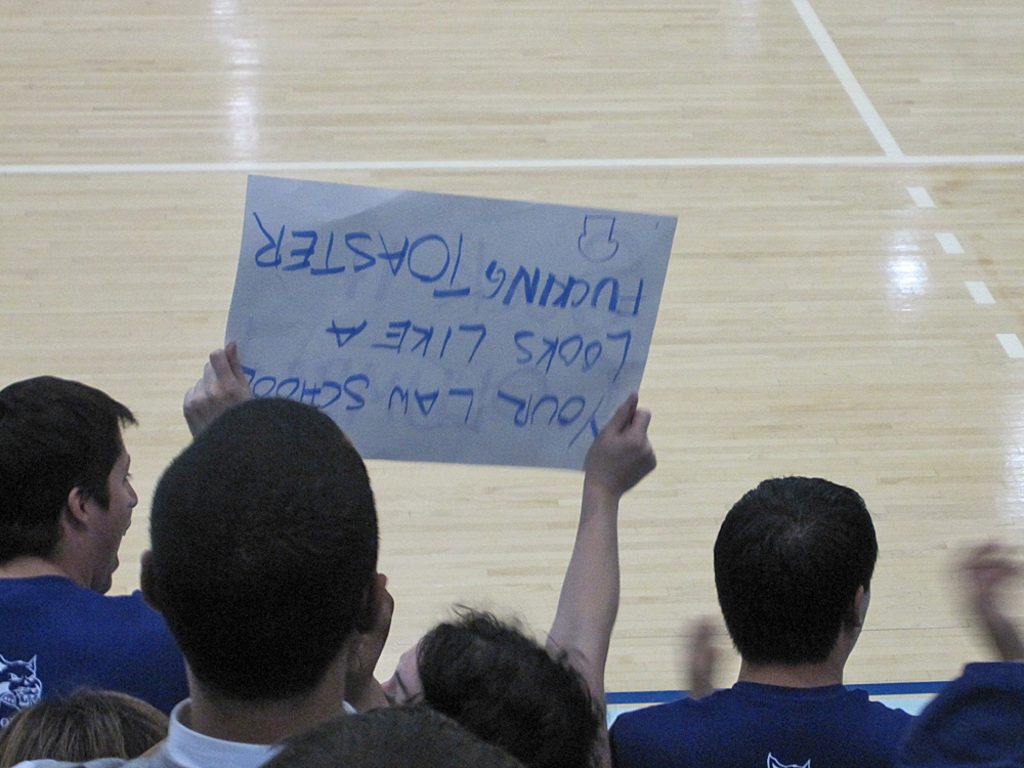 YOUR LAW SCHOOL
LOOKS LIKE A
FUCKING TOASTER